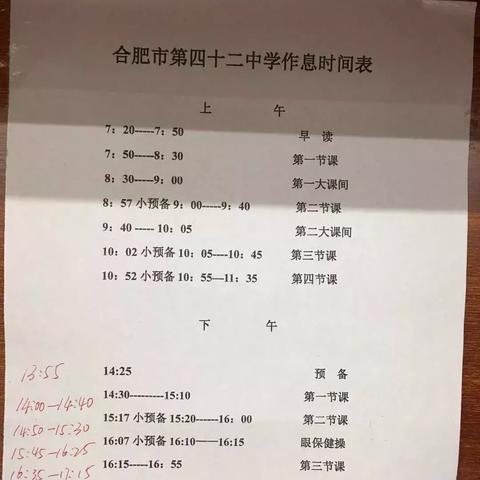 合肥市第四十二中学作息时间表
上 午
7：20-----7：50 早 读
7：50-----8：30 第一节课
8：30-----9：00 第一大课间
8：57 小预备 9：00-----9：40 第二节课
9：40 ----- 10：05 第二大课间
10：02 小预备 10：05----10：45 第三节课
10：52 小预备 10：55—11：35 第四节课
下 午
13:55
14:25 预 备
14:00—14:40
14:30---------15:10 第一节课
14:50-15:30
15:17 小预备 15:20------16：00 第二节课
15:45-16:25
16:07 小预备 16:10——16:15 眼保健操
16:35-17:15
16:15-----16：55 第三节课